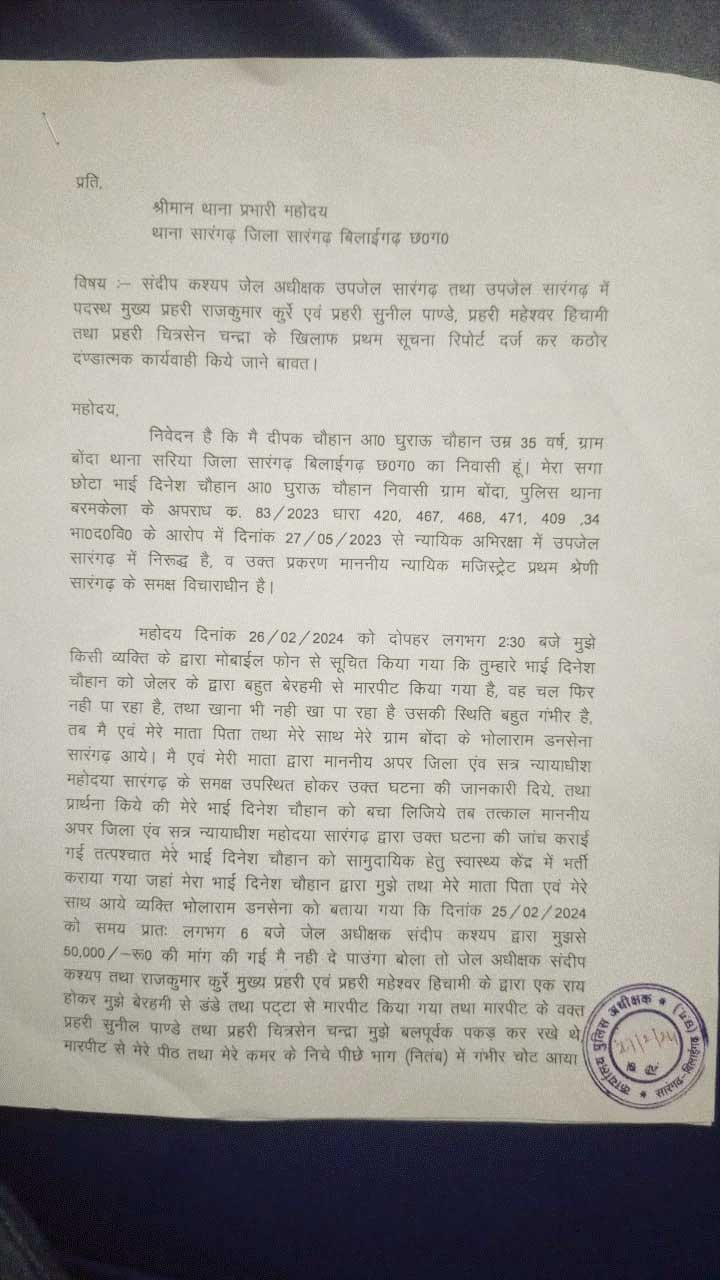 प्रति,
श्रीमान थाना प्रभारी महोदय
थाना सारंगढ़ जिला सारंगढ़ बिलाईगढ़ छ0ग0
विषय :– संदीप कश्यप जेल अधीक्षक उपजेल सारंगढ़ तथा उपजेल सारंगढ़ में
पदस्थ मुख्य प्रहरी राजकुमार कुर्रे एवं प्रहरी सुनील पाण्डे, प्रहरी महेश्वर हिचामी
तथा प्रहरी चित्रसेन चन्द्रा के खिलाफ प्रथम सूचना रिपोर्ट दर्ज कर कठोर
दण्डात्मक कार्यवाही किये जाने बावत।
महोदय,
निवेदन है कि मै दीपक चौहान आ0 घुराऊ चौहान उम्र 35 वर्ष, ग्राम
बोंदा थाना सरिया जिला सारंगढ़ बिलाईगढ़ छ0ग0 का निवासी हूं। मेरा सगा
छोटा भाई दिनेश चौहान आ0 घुराऊ चौहान निवासी ग्राम बोंदा, पुलिस थाना
बरमकेला के अपराध क. 83/2023 धारा 420, 467, 468, 471, 409 ,34
भा0द0वि0 के आरोप में दिनांक 27/05/2023 से न्यायिक अभिरक्षा में उपजेल
सारंगढ़ में निरूद्ध है, व उक्त प्रकरण माननीय न्यायिक मजिस्ट्रेट प्रथम श्रेणी
सारंगढ़ के समक्ष विचाराधीन है।
महोदय दिनांक 26/02/2024 को दोपहर लगभग 2:30 बजे मुझे
किसी व्यक्ति के द्वारा मोबाईल फोन से सूचित किया गया कि तुम्हारे भाई दिनेश
चौहान को जेलर के द्वारा बहुत बेरहमी से मारपीट किया गया है, वह चल फिर
नही पा रहा है, तथा खाना भी नही खा पा रहा है उसकी स्थिति बहुत गंभीर है,
तब मै एवं मेरे माता पिता तथा मेरे साथ मेरे ग्राम बोंदा के भोलाराम डनसेना
सारंगढ़ आये। मै एवं मेरी माता द्वारा माननीय अपर जिला एंव सत्र न्यायाधीश
महोदया सारंगढ़ के समक्ष उपस्थित होकर उक्त घटना की जानकारी दिये, तथा
प्रार्थना किये की मेरे भाई दिनेश चौहान को बचा लिजिये तब तत्काल माननीय
अपर जिला एंव सत्र न्यायाधीश महोदया सारंगढ़ द्वारा उक्त घटना की जांच कराई
गई तत्पश्चात मेरे भाई दिनेश चौहान को सामुदायिक हेतु स्वास्थ्य केंद्र में भर्ती
कराया गया जहां मेरा भाई दिनेश चौहान द्वारा मुझे तथा मेरे माता पिता एवं मेरे
साथ आये व्यक्ति भोलाराम डनसेना को बताया गया कि दिनांक 25/02/2024
को समय प्रातः लगभग 6 बजे जेल अधीक्षक संदीप कश्यप द्वारा मुझसे
50,000/–रू0 की मांग की गई मै नही दे पाउंगा बोला तो जेल अधीक्षक संदीप
कश्यप तथा राजकुमार कुर्रे मुख्य प्रहरी एवं प्रहरी महेश्वर हिचामी के द्वारा एक राय
होकर मुझे बेरहमी से डंडे तथा पट्टा से मारपीट किया गया तथा मारपीट के वक्त
प्रहरी सुनील पाण्डे तथा प्रहरी चित्रसेन चन्द्रा मुझे बलपूर्वक पकड़ कर रखे थे
मारपीट से मेरे पीठ तथा मेरे कमर के निचे पीछे भाग (नितंब) में गंभीर चोट आया
कार्यालय पुलिस अधीक्षक
सारंगढ़-बिलाईगढ़